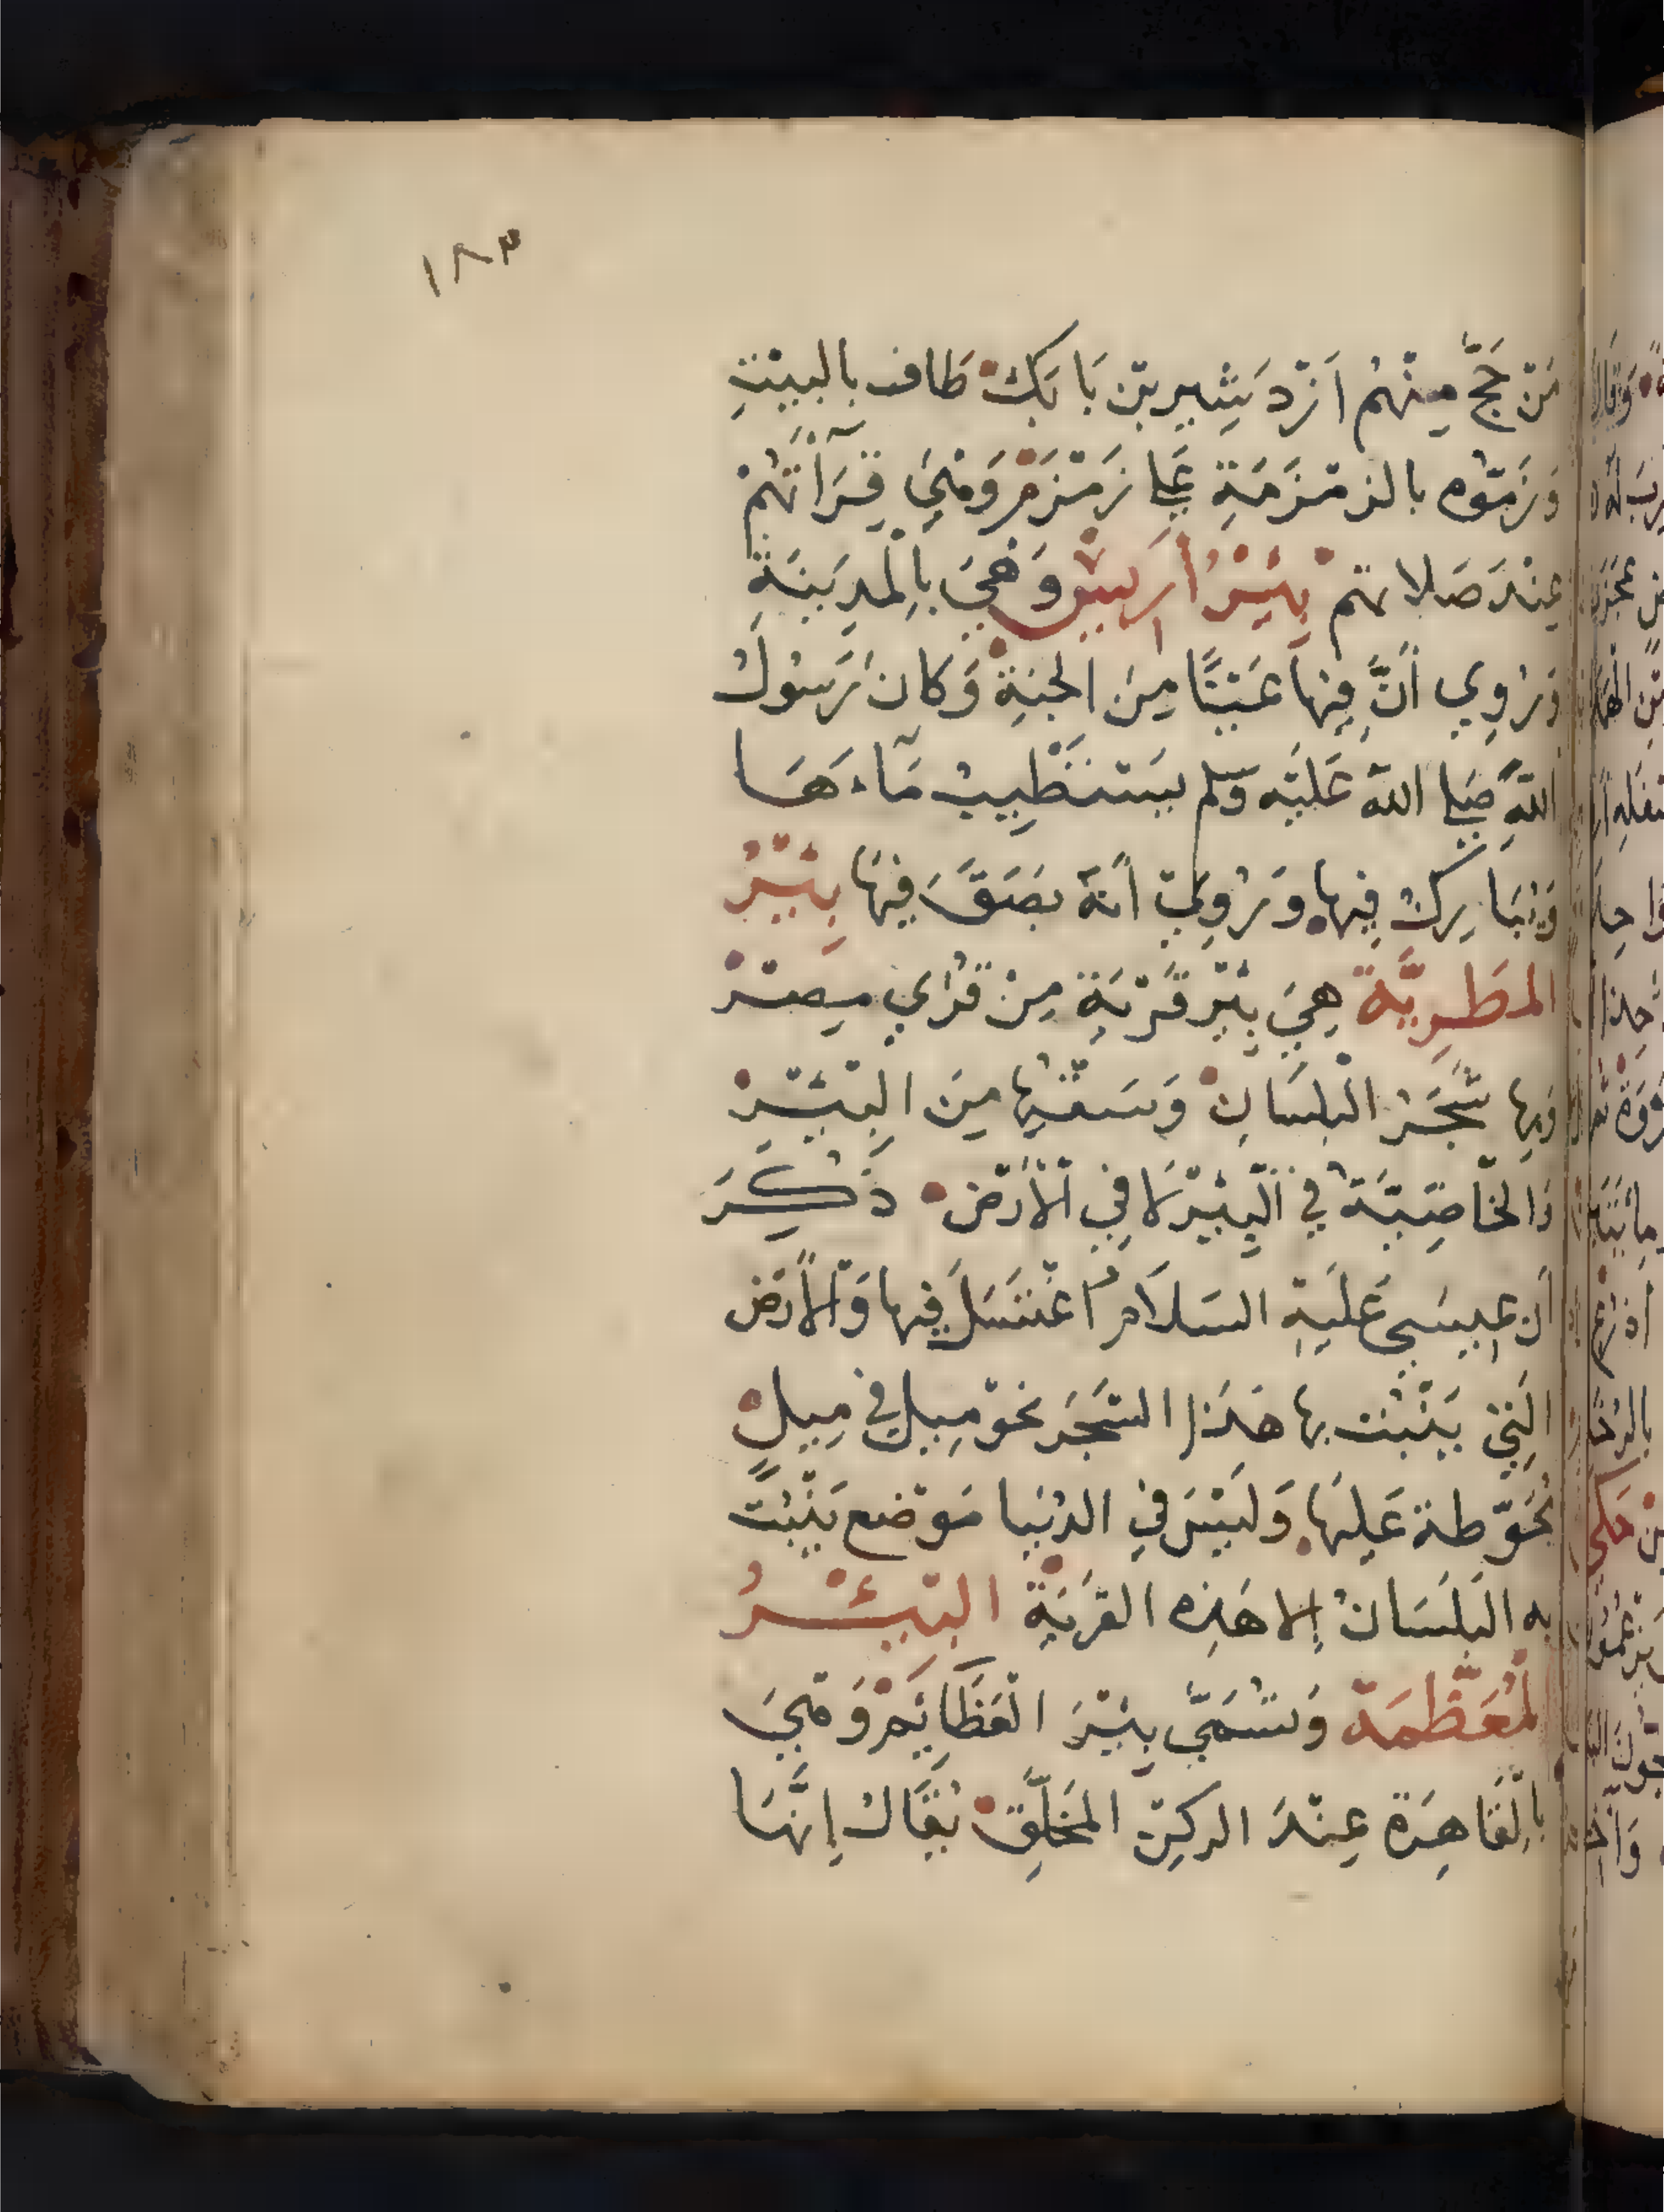 ١٨٣
مَنْ حَجَّ مِنْهُمْ أَزْدَشِير بْن بَابَكْ طَاف بالبيْتِ
وَزَمْوه بالزمْزَمَةِ عَلى زمْزَمْ وَهْيَ قِرَآتهُمْ
عِنْدَ صَلاتهم بِئْرُ أَرِيسْ وَهِيَ بِالْمدِينَةِ
وَرُوِي أَنَّ فِيها عَيْنًا مِنَ الجنةِ وَكان رَسُولُ
اللهِ صَلى اللهُ عَليْه وَسلم يستَطِيبُ مَاءَهَا
وَيُبَارِكُ فِيها وَرُوِيَ أنهُ بَصَقَ فِيهَا بِئْرُ
المطَرِيَّة هِيَ بِئْر قَرْيَةٍ مِنْ قرَاي مِصْرْ
وَبِها شَجَرُ البَلسَانْ وَسَقْيها مِنَ البِئْرْ
وَالخاصِيَّةُ في البِيْرْ لا فِي الْأَرْضْ ذُكِرَ
أن عِيسَى عَليْهِ السَلَامُ اغْتَسَلَ فِيها وَالأَرْض
التِي يَنْبُت بها هَذَا الشَجَر نحْو مِيلٍ في مِيلٍ
مُحَوّطة عَليهَا وَلَيْسَ فِي الدُنيا مَوْضع يَنْبُت
به البَلَسَانُ إلا هَذِه القرْيَة البِئْرُ
الْمُعَظَّمَة وَتسَمَّى بِئْرَ العَظَايَمْ وَهْيَ
بِالقَاهِرَة عِنْدَ الركنِ المخَلَّقْ يُقَالُ إِنَّهَا